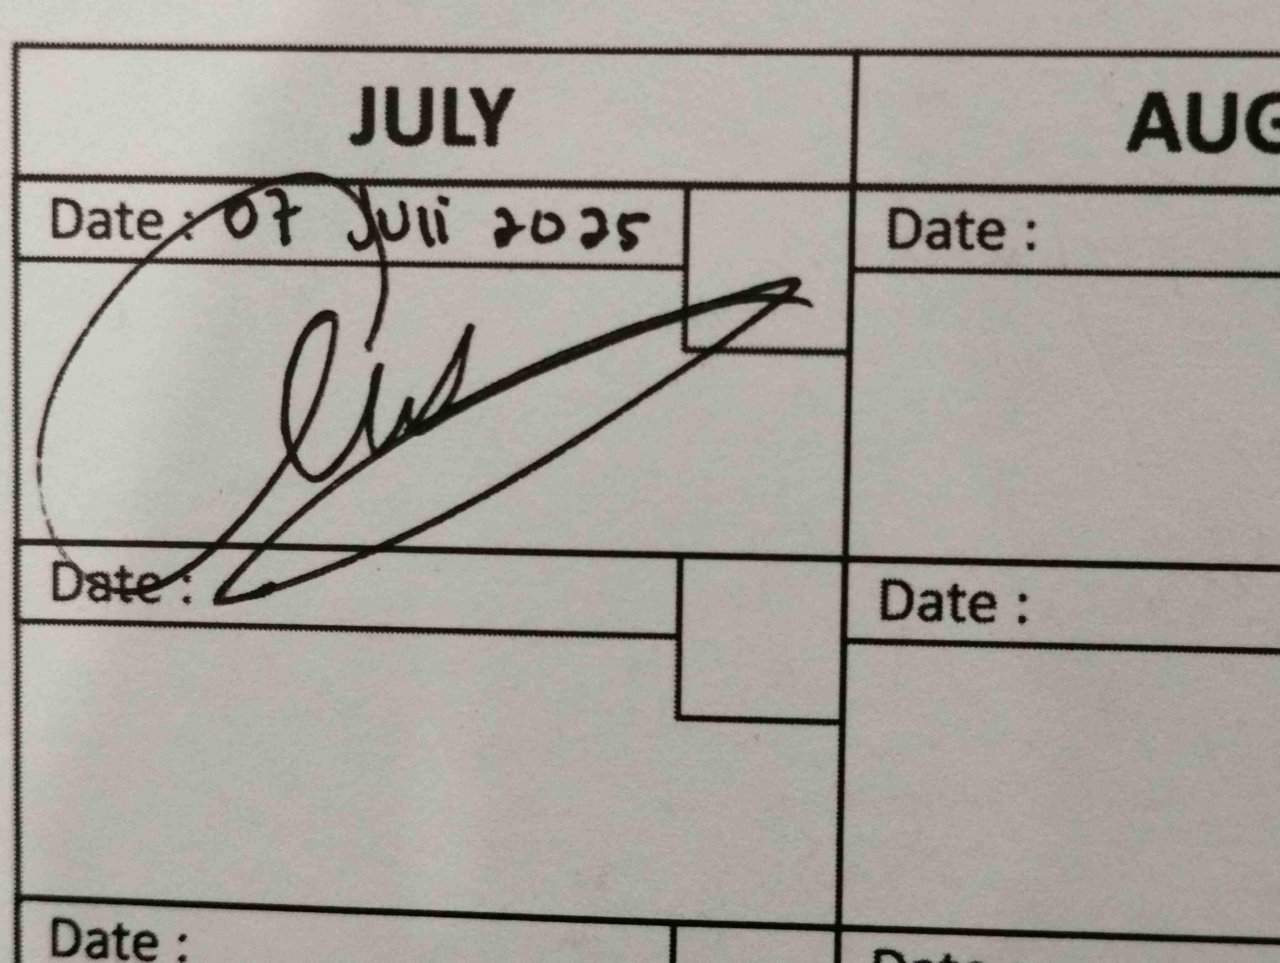 JULY
AUG
Date : 07 Juli 2025
Date :
Date :
Date :
Date :
Date